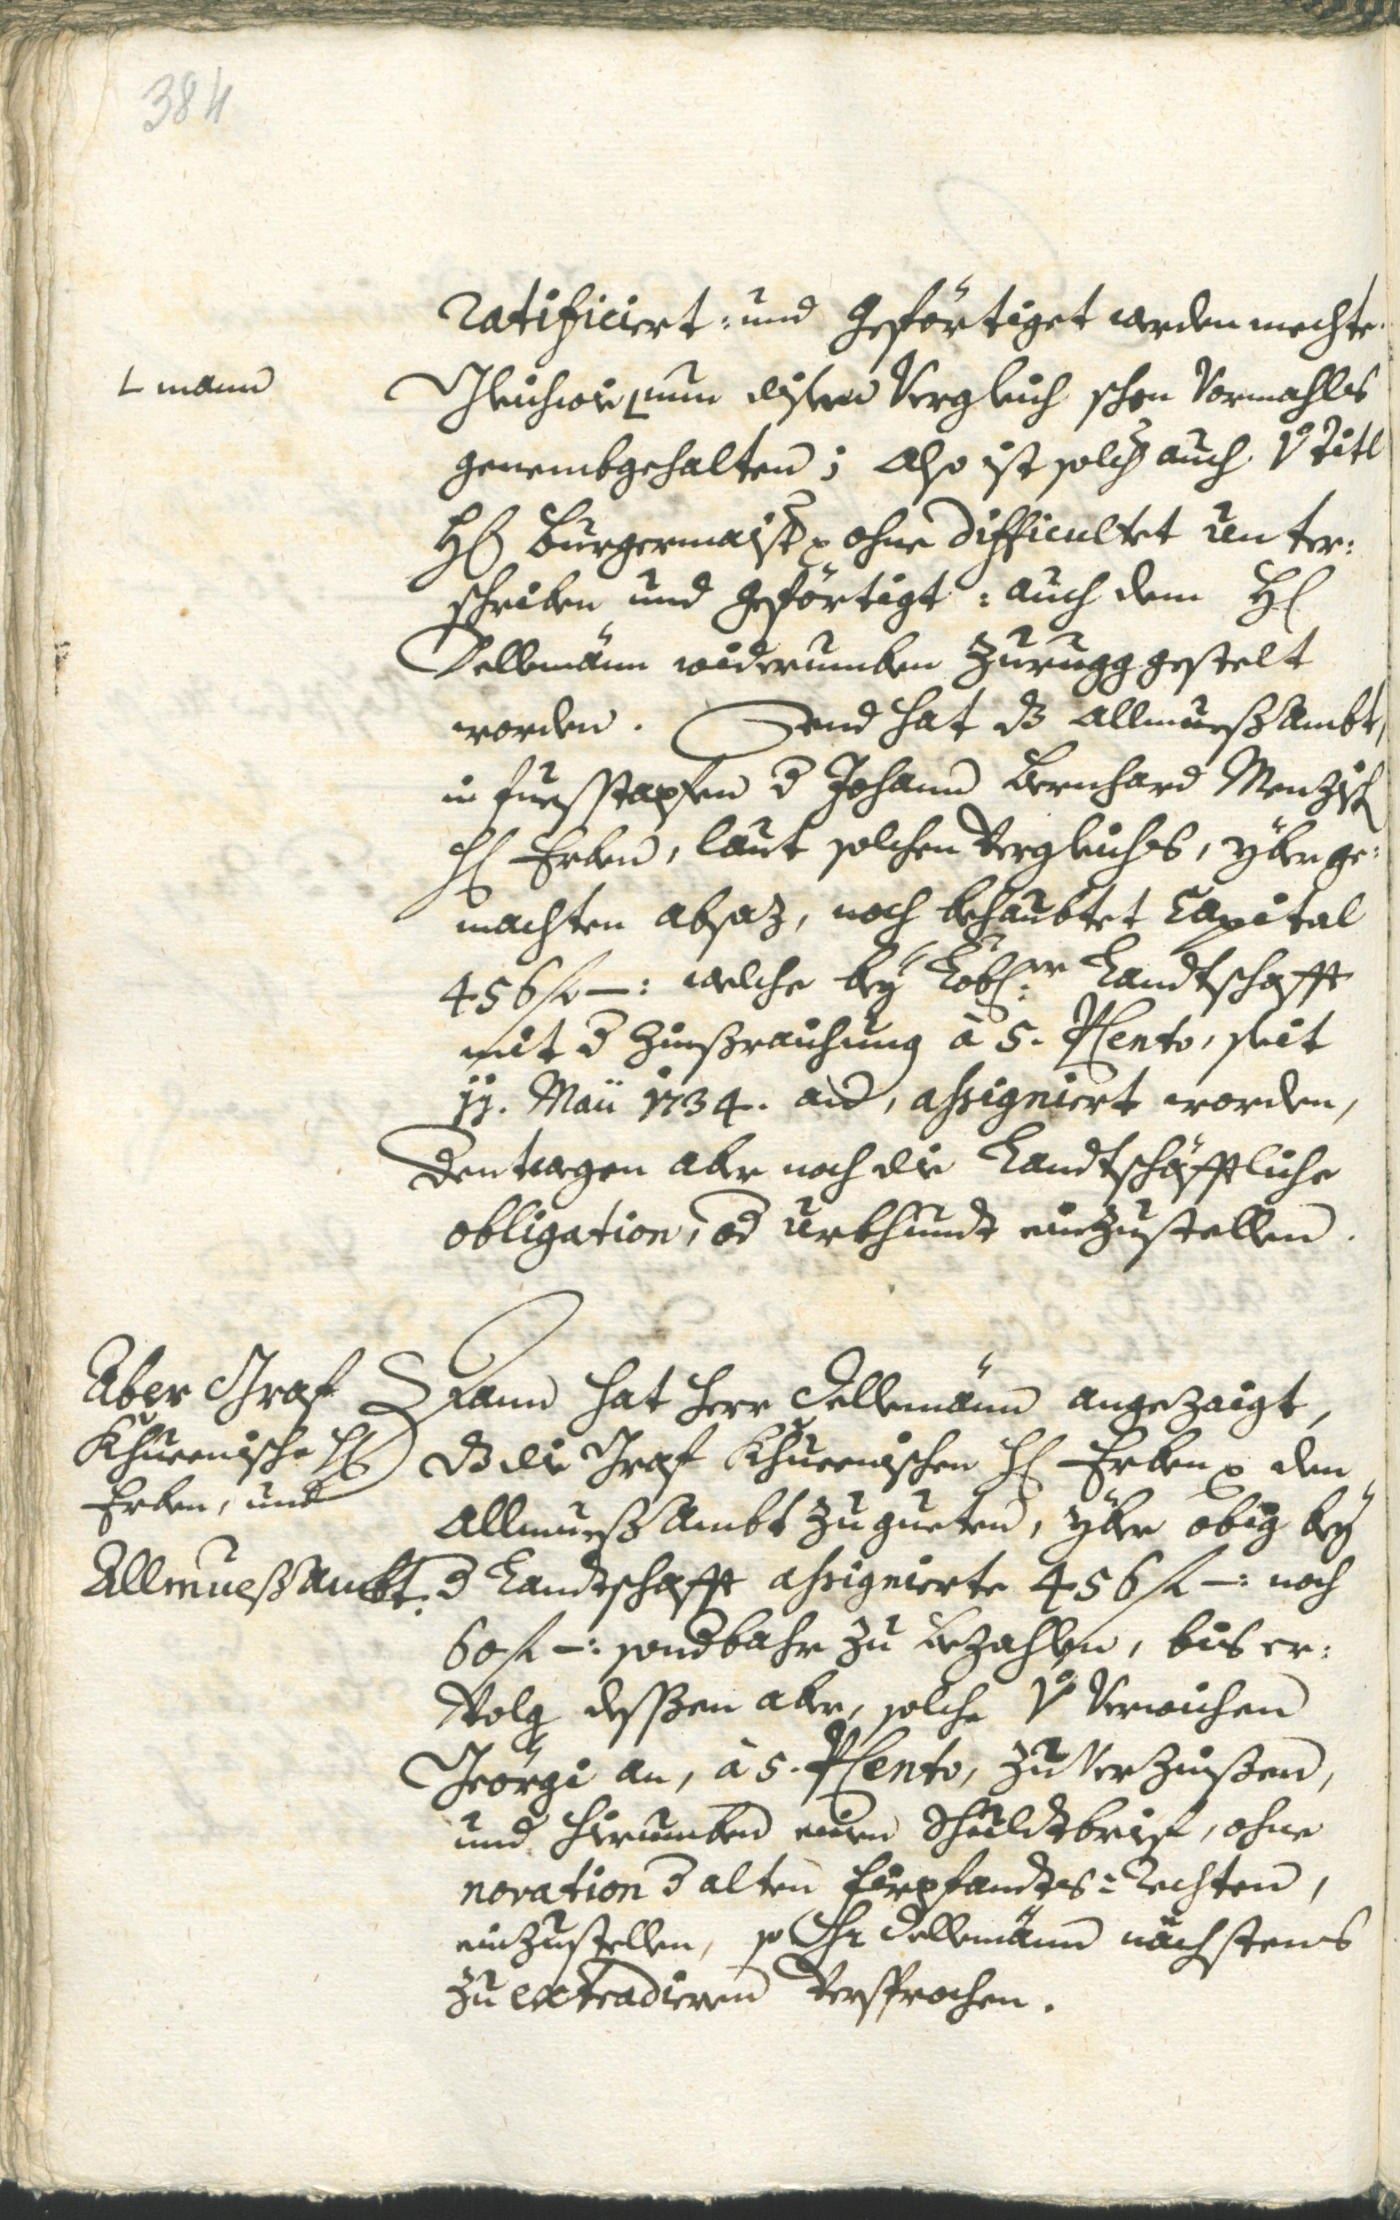 384
ratificiert: und geförtiget werden mechte.
L mann
Gleichwie L nun disen Vergleich schon Vormahls
genembgehalten; Also ist solch auch Titl
H Burgermaist ohne difficultet unter:
schriben und geförtigt: auch dem H
Dellemänn widerumben Zurugg gestelt
worden. Und hat dz Allmueß Ambt,
in fuesstapfen d Johann Bernhard Menzis
H Erben, laut solchen Vergleichs, yber ge:
machten absaz, noch behaubtet Capital
456 f —: welche bey Löbl:er Landtschafft
mit d Zinßraichung à 5. PCento, seit
11. Maii 1734. an, assigniert worden,
dentwegen aber noch die Landtschäfftliche
obligation, od urkhundt einzustellen.
Aber Graf
Khuenische H
Erben, und
Allmueß Ambt.
Dann hat Herr Dellemänn angezaigt,
dz die Graf Khuenischen H Erben den
Allmueß Ambt zu gueten, yber obig bey
d Landtschafft assignierte 456 f —: noch
60 f —: sondbahr zu bezahlen, bis er:
Volg dessen aber, solche Verwichen
Geörgi an, à 5. PCento, zu Verzinßen,
und hierumben einen Schuldtbrief, ohne
novation d alten fürpfandts=Rechten,
einzustellen, so Hr Dellemänn nächstens
zu extradieren Versprochen.